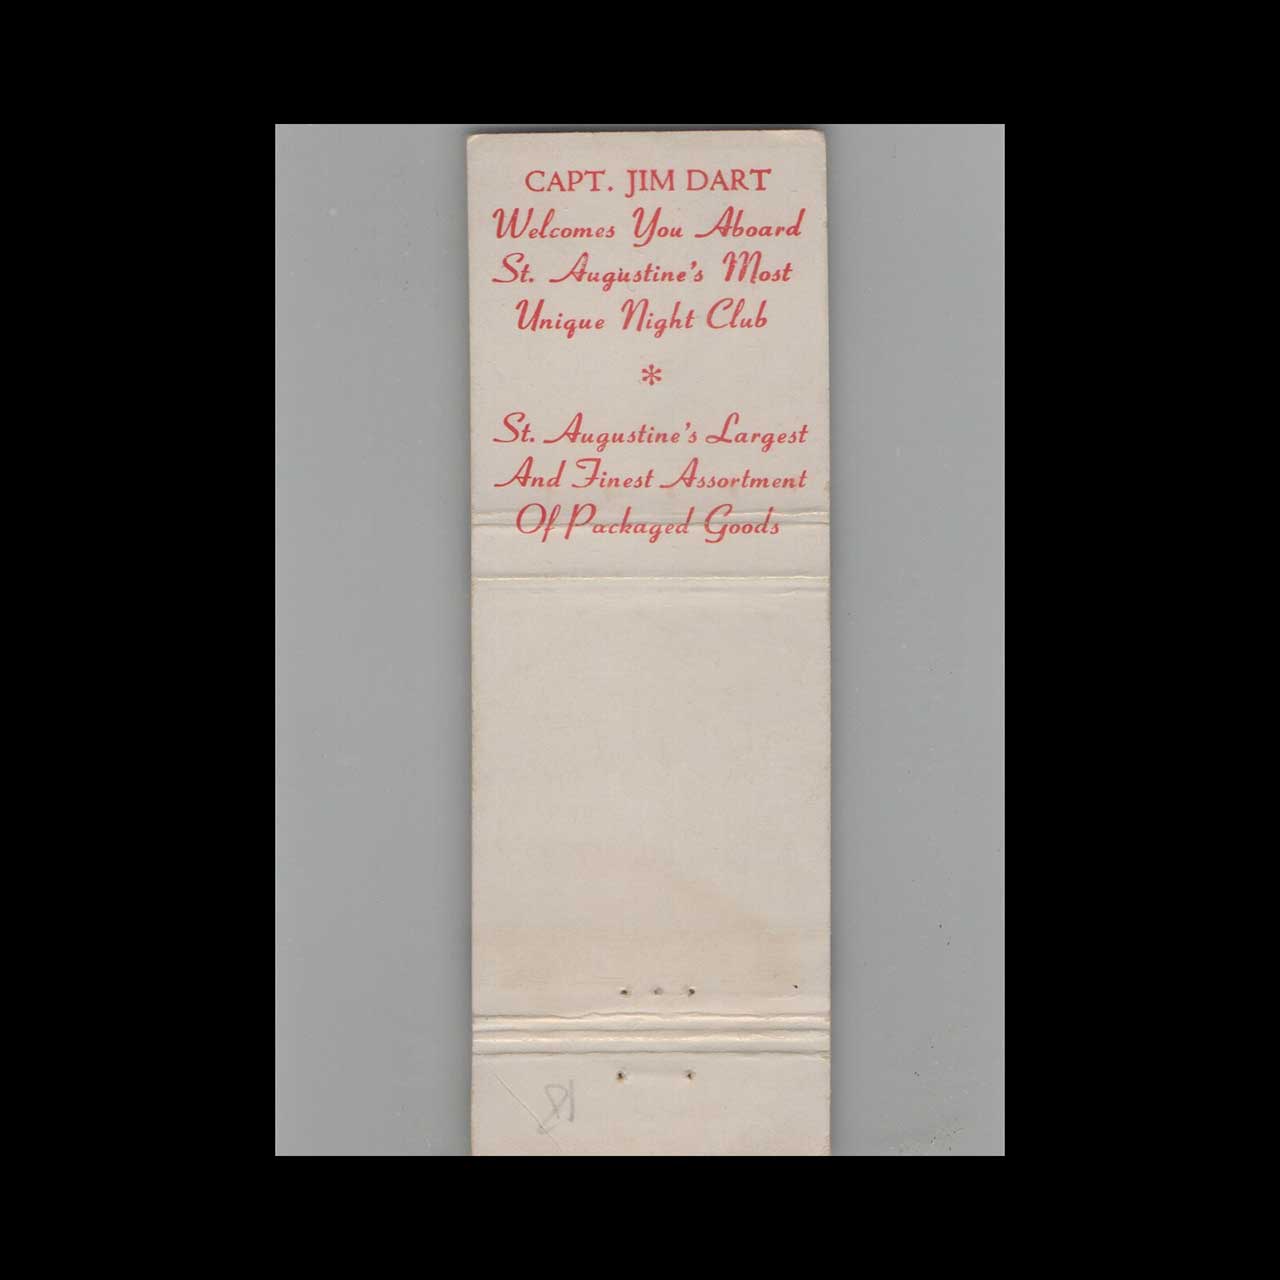 CAPT. JIM DART
Welcomes You Aboard
St. Augustine's Most
Unique Night Club
*
St. Augustine's Largest
And Finest Assortment
Of Packaged Goods